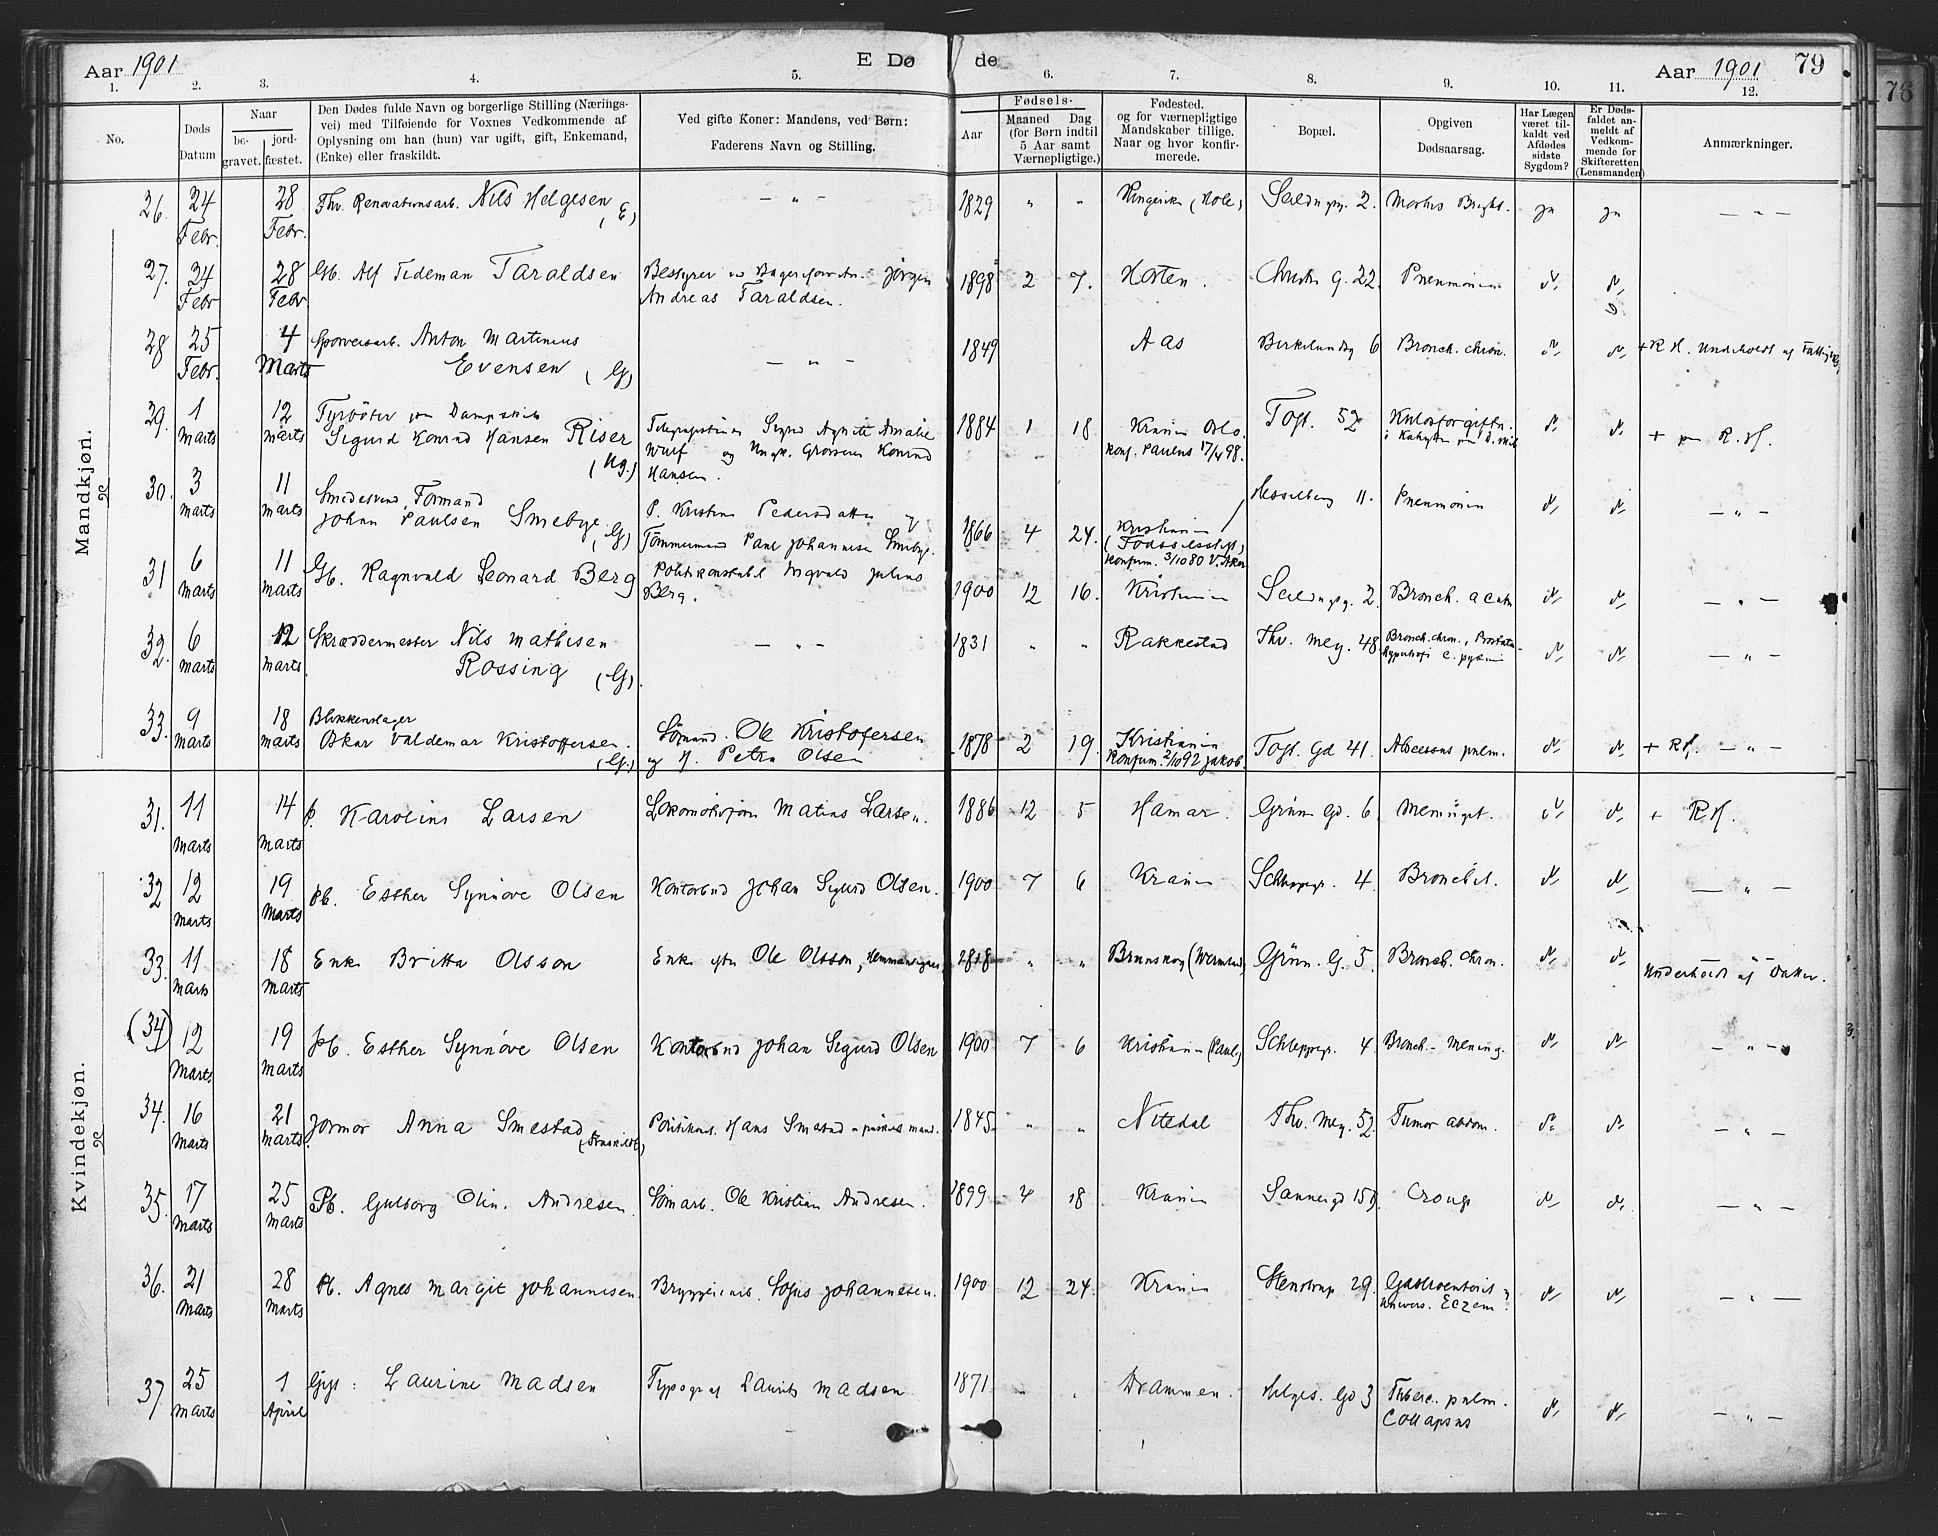 Aar 1901 E Døde Aar 1901 79
1. 2. 3. 4. 5. 6. 7. 8. 9. 10. 11. 12.
No. Døds Datum Naar begravet. jordfæstet.
Den Dødes fulde Navn og borgerlige Stilling (Nærings-
vei) med Tilføiende for Voxnes Vedkommende af
Oplysning om han (hun) var ugift, gift, Enkemand,
(Enke) eller fraskildt.
Ved gifte Koner: Mandens, ved Børn:
Faderens Navn og Stilling.
Fødsels-
Aar Maaned Dag
(for Børn indtil
5 Aar samt
Værnepligtige.)
Fødested.
og for værnepligtige
Mandskaber tillige.
Naar og hvor konfir-
merede.
Bopæl.
Opgiven
Dødsaarsag.
Har Lægen
været til-
kaldt ved
Afdødes
sidste
Sygdom?
Er Døds-
faldet an-
meldt af
Vedkom-
mende for
Skifteretten
(Lensmanden)
Anmærkninger.
Mandkjøn.
26. 24 Febr. 28 Febr. Fhv. Renovationsarb. Nils Helgesen (E) — " — 1829 " " Ringerike (Hole) 2. Morbus Bright. ja ja — " —
27. 24 Febr 28 Febr Gb. Alf Tedeman Taraldsen Bestyrer Jörgen
Andreas Taraldsen. 1898 2 7. Horten. 22. Pneumonia
28 25 Febr. 4 Marts Sporveisarb. Anton Martinius
Evensen (G) — " — 1849 Aas Birkelundg 6 Bronch. chron. + R H. Underholdt af
29. 1 Marts 12 Marts Fyrböter paa Dampskib
Sigurd Konrad Hansen Riser (Ug.) Sigrid Agnete Amalie
Wulf og Ungk. Grosserer Konrad
Hansen. 1884 1 18. Krania Oslo.
Konf. Paulus 17/4 98. Toft. 52 Kulosforgiftn. + R. H.
30. 3 Marts 11 Marts Smedesvend, Formand
Johan Paulsen Smebye (G) P. Kristine Pedersdatter og
Tömmermand Paul Johannesen Smebye. 1866 4 24. Kristiania
(Födselsstift)
Konfirm. 3/10 80 V. Aker Hesselberg 11. Pneumonia — " —
31 6 Marts 11 Marts Gb. Ragnvald Leonard Berg Politikonstabel Ingvald Julius
Berg. 1900 12 16. Kristiania 2. Bronch. acuta — " —
32. 6 Marts 12 Marts Skræddermester Nils Mathisen
Rossing (G). — " — 1831 " " Rakkestad Thv. Mey. 48. Bronch. chron., Prostata-
— " —
33. 9 Marts 18 Marts Blikkenslager
Oskar Valdemar Kristoffersen. (G.) Sömand. Ole Kristofersen
og H. Petra Olsen 1878 2 19. Kristiania
Konfirm. 2/10 92 Jakob. Toft. Gd 41. Abscessus pulm. + RH. — " —
Kvindekjøn.
31. 11 Marts 14 Marts P. Karoline Larsen Matius Larsen. 1886 12 5 Hamar. Grün. Gd. 6 Meningit. + RH.
32 12 Marts 19 Marts Pb. Esther Synnöve Olsen Kontorbud Johan Sigurd Olsen. 1900 7 6 Krania Schleppegr. 4. Bronchit. — " —
33. 11 Marts 18 Marts Enke Britta Olsson Enke efter Ole Olsson, Hemmansegner 1818 " " Brunskog (Wermland) Grün. G. 5. Bronch. chron. Underholdt af Datter.
(34) 12 Marts 19 Marts Pb. Esther Synnöve Olsen Kontorbud Johan Sigurd Olsen 1900 7 6 Kristiania (Paul.) Schleppegr. 4 Bronch. - Mening. — " —
34. 16 Marts 21 Marts Jormor Anna Smestad (fraskildt) Politikonst. Hans Smestad 1845. " " Nitedal Thv. Mey. 52. Tumor abdom. — " —
35. 17 Marts 25 Marts Pb. Gulborg Olin. Andresen. Sömarb. Ole Kristian Andresen. 1899 4 18. Krania Sannergd 15 Croup — " —
36. 21 Marts 28 Marts Pb. Agnes Margit Johannesen. Bryggeriarb. Sofus Johannesen. 1900 12 24. Krania Stenstrup 29. Gastroenterit og
univers. Eczem. — " —
37 25 Marts 1 April Laurine Madsen Typograf Laurits Madsen. 1871 " " Drammen. Helges. Gd 3 Tuberc. pulm.
Collapsus — " —
76